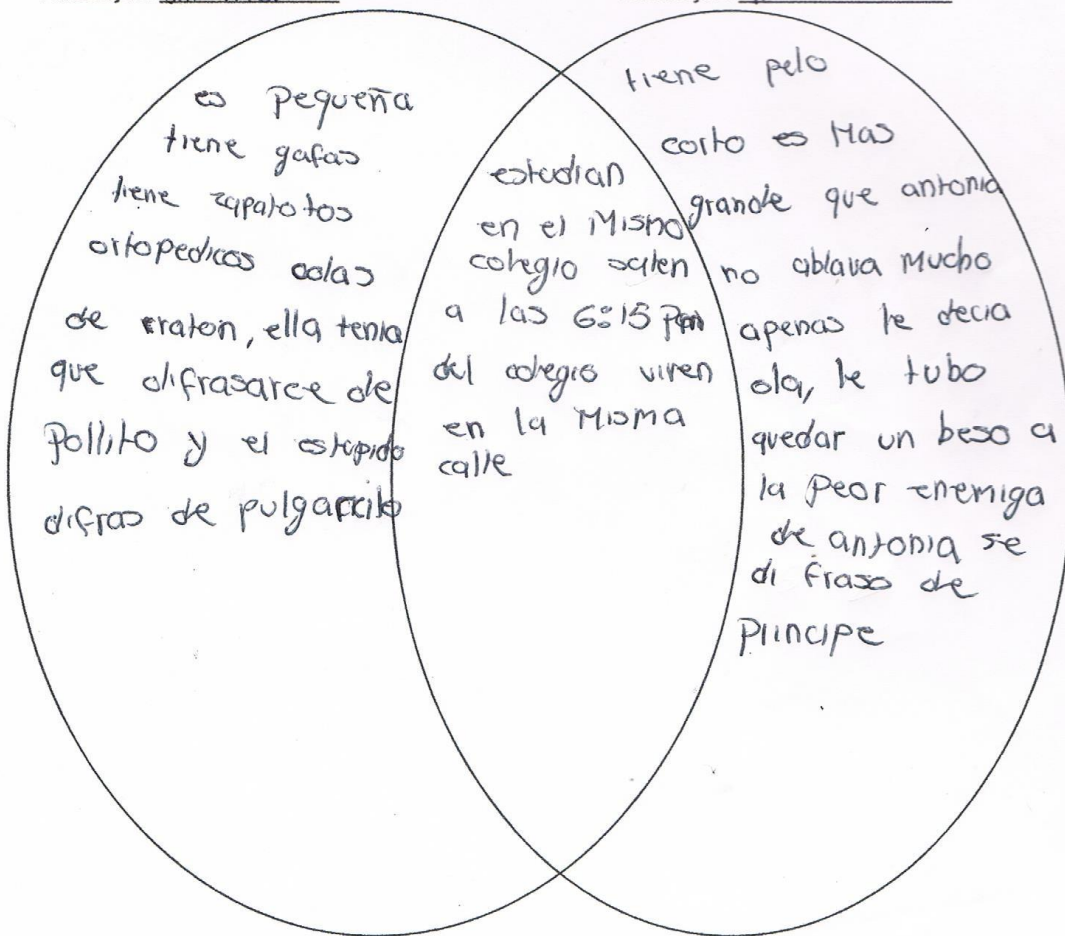 es pequeña
tiene gafas
tiene zapatotos
ortopedicos colas
de raton, ella tenia
que difrasarce de
Pollito y el estupido
difras de pulgarcito
estudian
en el Mismo
colegio salen
a las 6:15 Pm
del colegio viven
en la Misma
calle
tiene pelo
corto es Mas
grande que antonia
no ablava Mucho
apenas le decia
ola, le tubo
quedar un beso a
la Peor enemiga
de antonia se
di fraso de
Principe